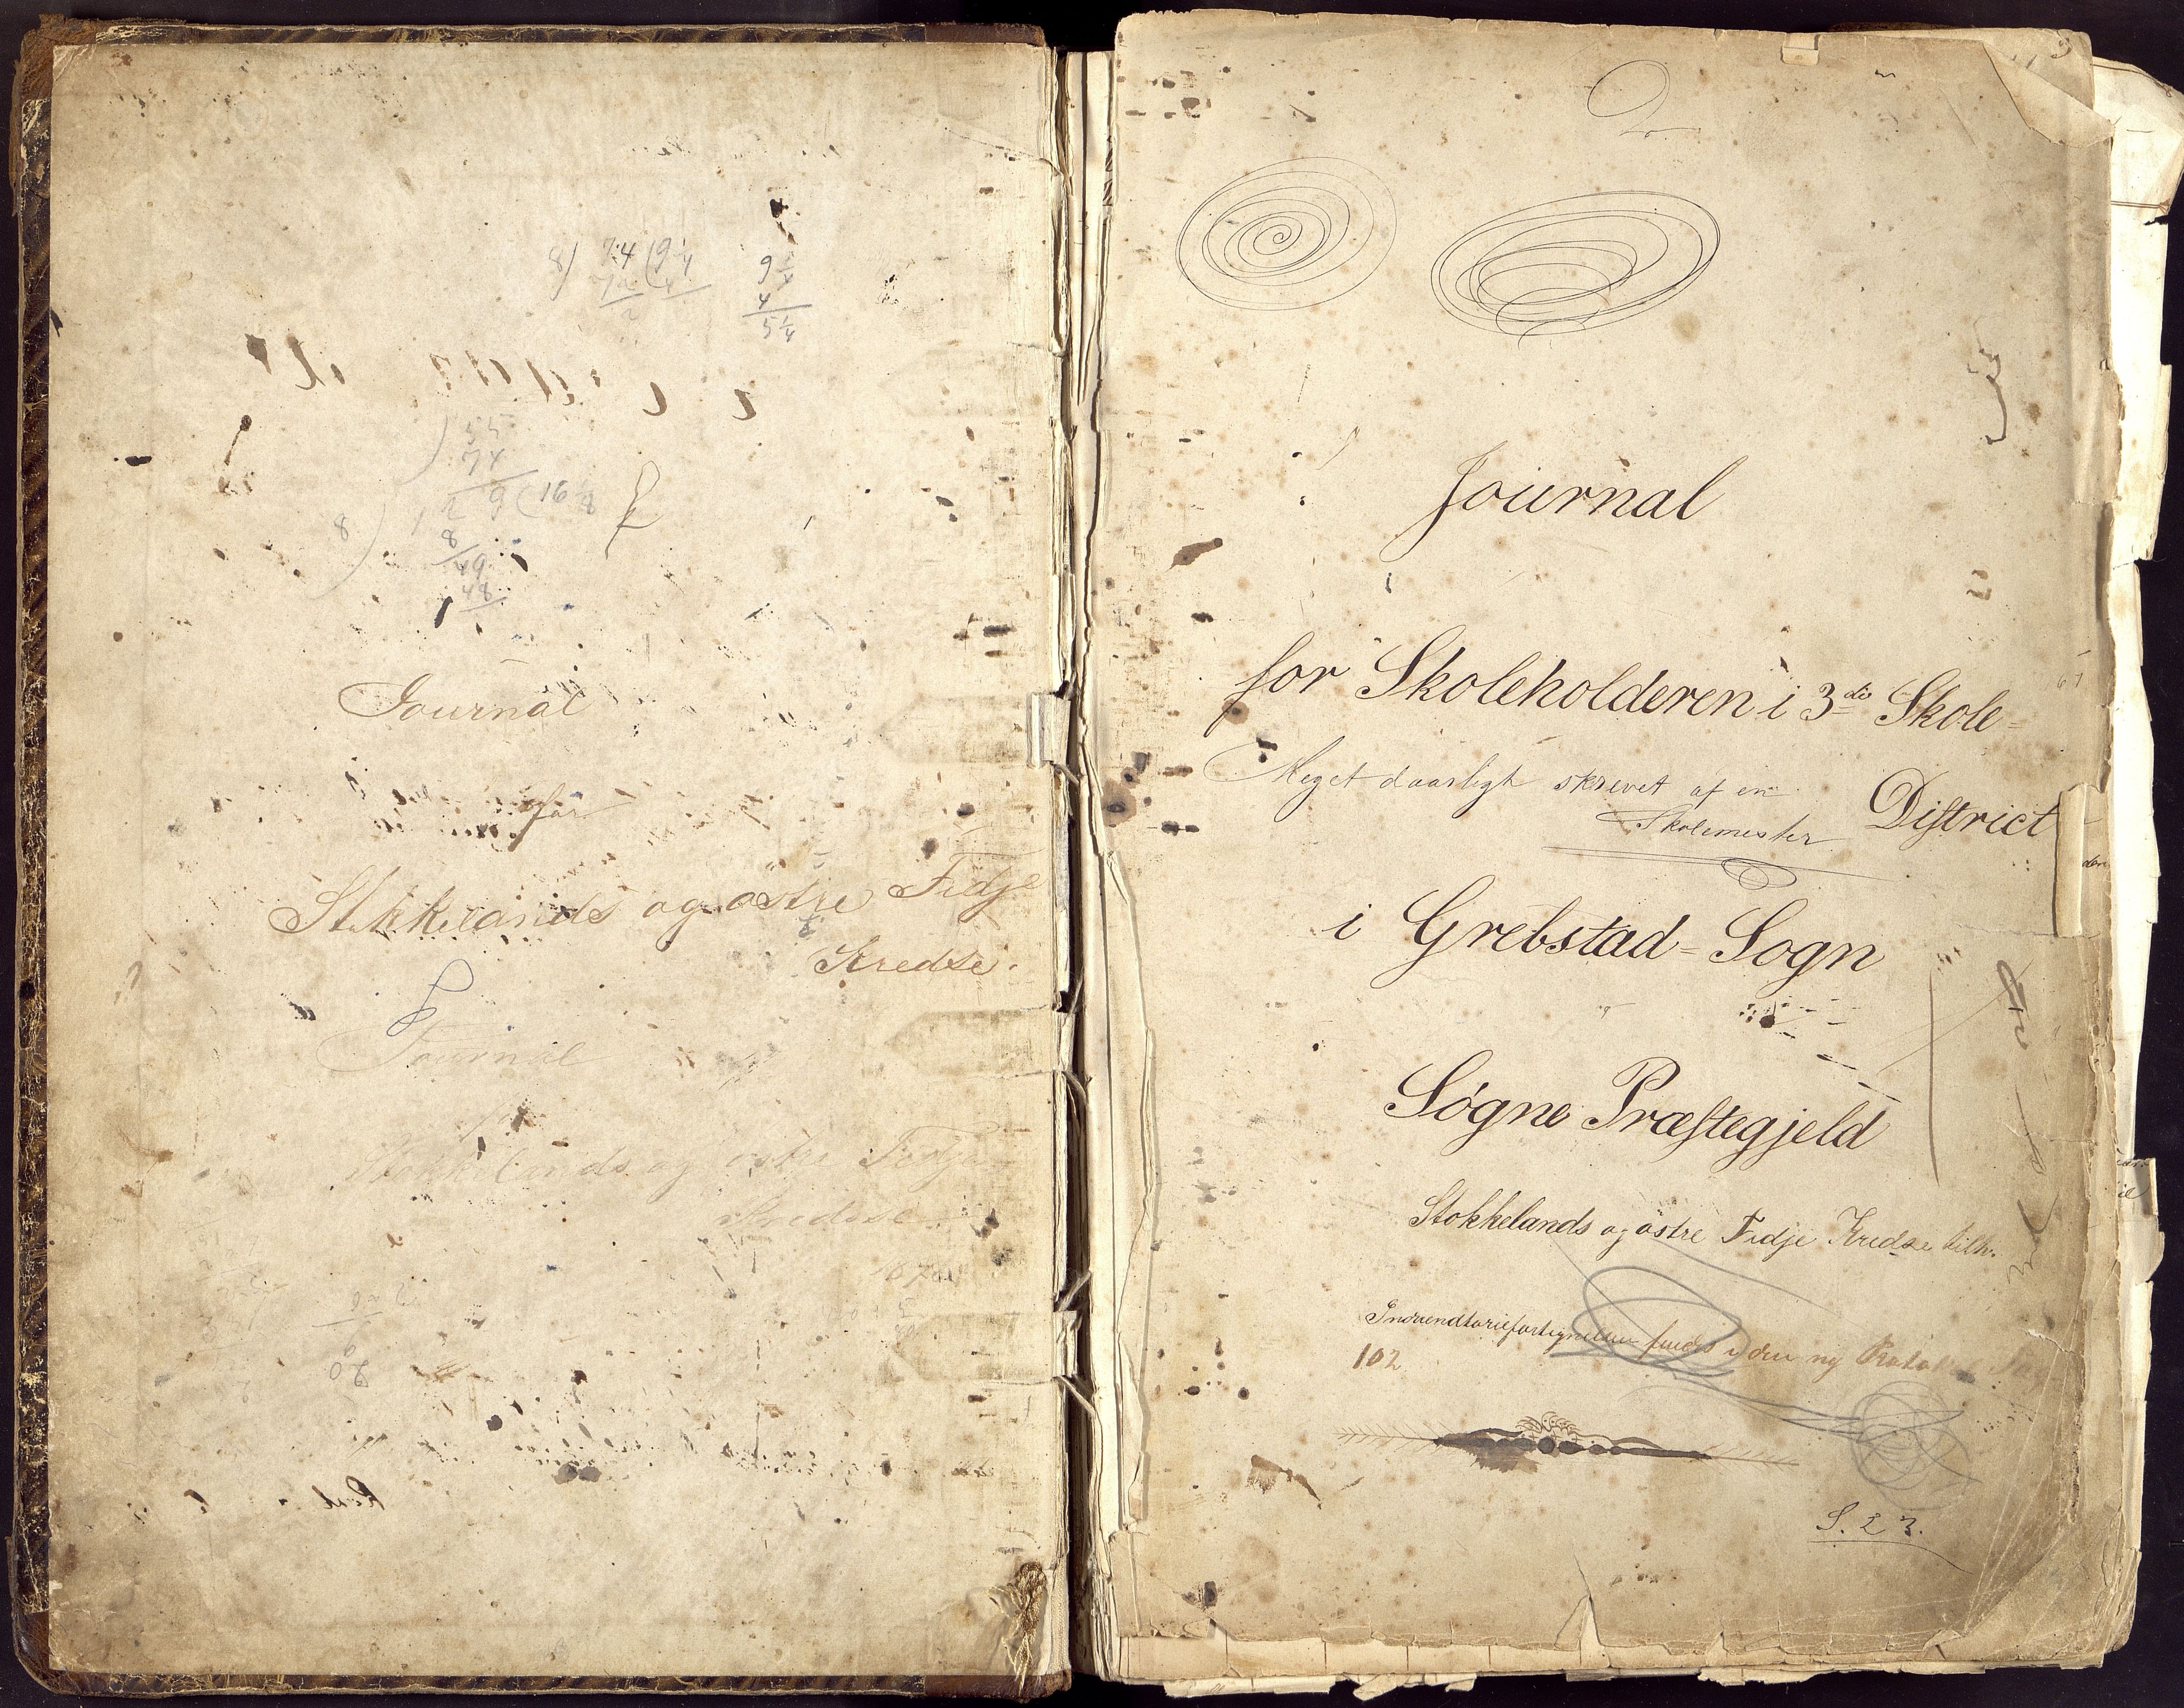 8) 74 (9 1/4
72
2
9 1/4
4
5 1/4
55
74
8) 129 (16 1/8
8
49
48
Journal
for
Stokkelands og østre Fidje
Kredse.
Journal
Stokkelands og østre Fidje
Kredse
Journal
for Skoleholderen i 3die Skole=
Meget daarligt skrevet af en
Skolemester
District
i Grebstad=Sogn
Søgne Præstegjeld
Stokkelands og østre Fidje Kredse tilh.
Inventariefortegnelsen findes i den ny Protokol
102
S. 23.